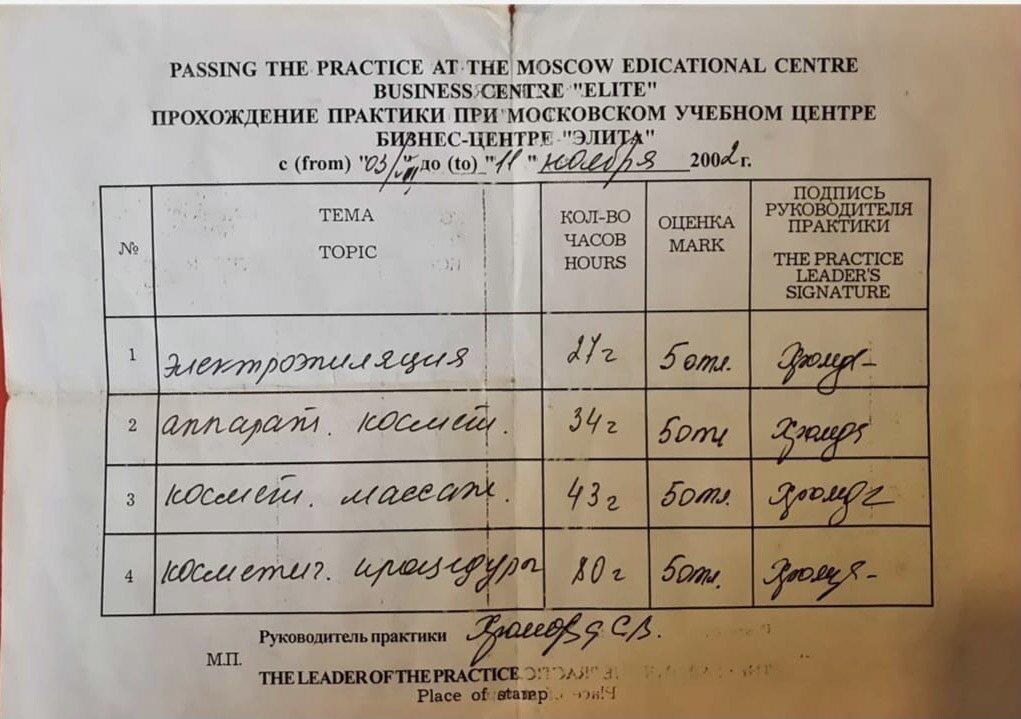 PASSING THE PRACTICE AT THE MOSCOW EDICATIONAL CENTRE
BUSINESS CENTRE "ELITE"
ПРОХОЖДЕНИЕ ПРАКТИКИ ПРИ МОСКОВСКОМ УЧЕБНОМ ЦЕНТРЕ
БИЗНЕС-ЦЕНТРЕ "ЭЛИТА"
с (from) "03/VIII" до (to) "11" ноября 2002 г.
№ ТЕМА TOPIC КОЛ-ВО ЧАСОВ HOURS ОЦЕНКА MARK ПОДПИСЬ РУКОВОДИТЕЛЯ ПРАКТИКИ THE PRACTICE LEADER'S SIGNATURE
1 электроэпиляция 27 г 5 отл.
2 аппарат. космет. 34 г 5 отл
3 космет. массаж. 43 г 5 отл.
4 косметич. процедуры 80 г 5 отл.
Руководитель практики Хромова С.В.
М.П.
THE LEADER OF THE PRACTICE
Place of stamp